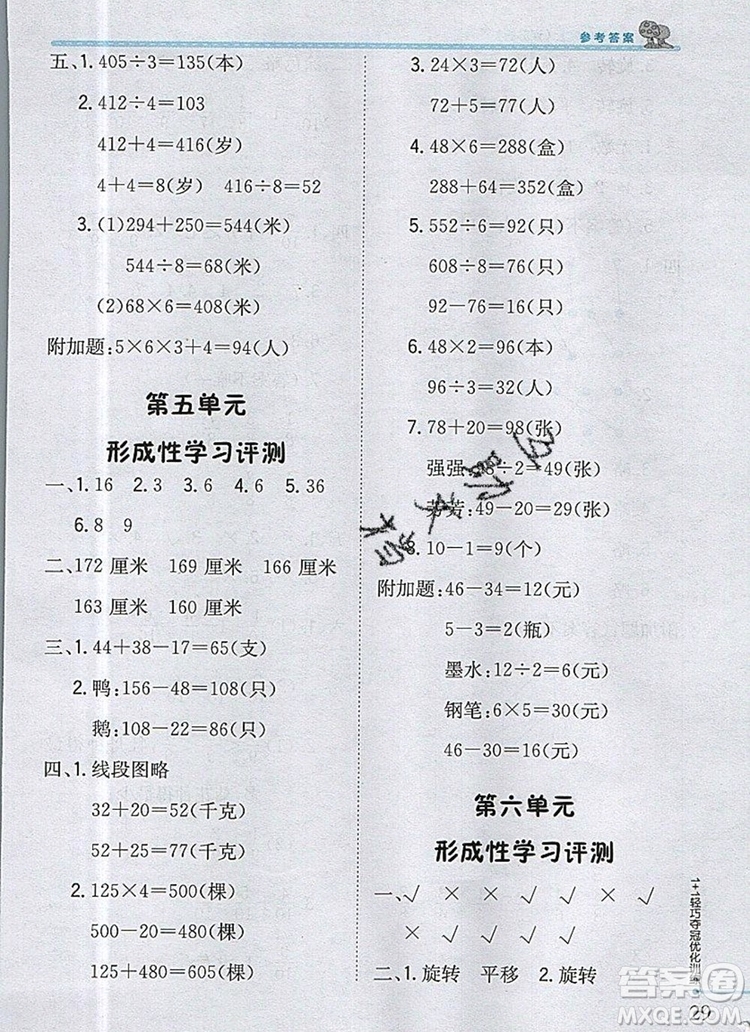 参考答案
五、1. 405÷3=135(本)
2. 412÷4=103
412+4=416(岁)
4+4=8(岁) 416÷8=52
3. (1)294+250=544(米)
544÷8=68(米)
(2)68×6=408(米)
附加题:5×6×3+4=94(人)
第五单元
形成性学习评测
一、1. 16 2. 3 3. 6 4. 6 5. 36
6. 8 9
二、172 厘米 169 厘米 166 厘米
163 厘米 160 厘米
三、1. 44+38-17=65(支)
2. 鸭:156-48=108(只)
鹅:108-22=86(只)
四、1. 线段图略
32+20=52(千克)
52+25=77(千克)
2. 125×4=500(棵)
500-20=480(棵)
125+480=605(棵)
3. 24×3=72(人)
72+0=72(人)
4. 48×6=288(盒)
288+64=352(盒)
5. 552÷6=92(只)
608÷8=76(只)
92-76=16(只)
6. 48×2=96(本)
96÷3=32(本)
7. 78+20=98(张)
强强:98÷2=49(张)
芳芳:49-20=29(张)
8. 10-1=9(个)
附加题:46-34=12(元)
5-3=2(瓶)
墨水:12÷2=6(元)
钢笔:6×5=30(元)
46-30=16(元)
第六单元
形成性学习评测
一、√ × × √ √ ×
√ √ √ √
二、1. 旋转 平移 2. 旋转
1+1轻巧夺冠优化训练
29
答案圈
MXQE.COM